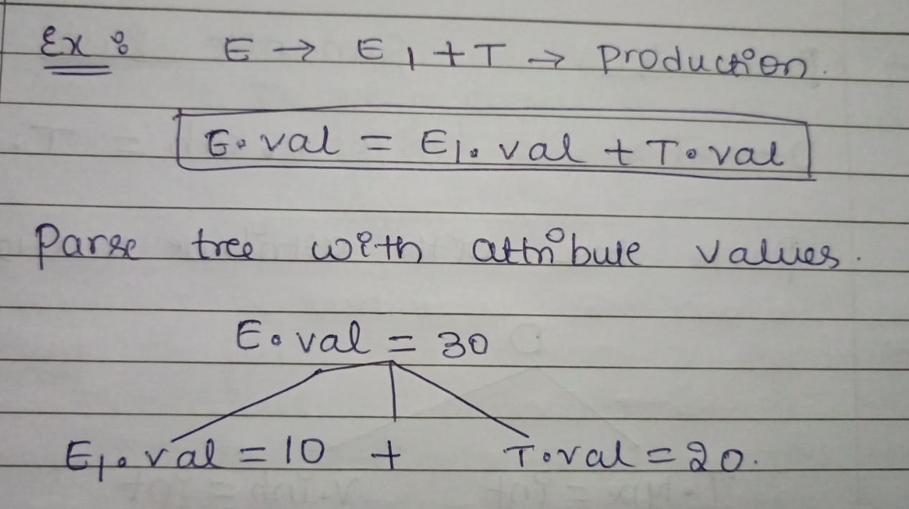 Ex : E → E1 + T → Production.
E.val = E1.val + T.val
Parse tree with attribute values.
E.val = 30
E1.val = 10 + T.val = 20.